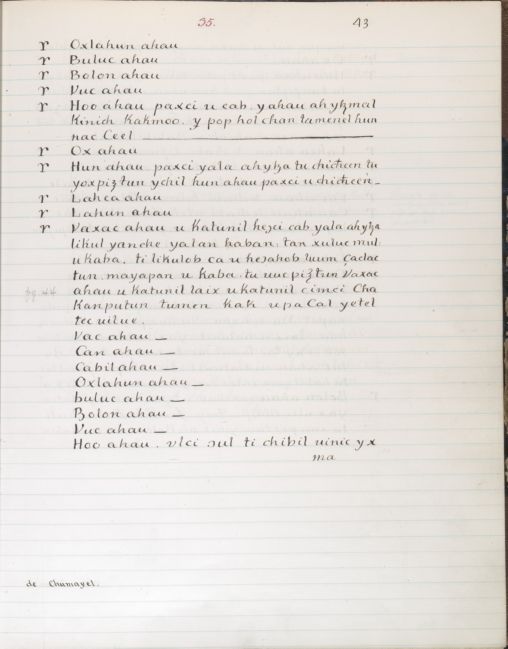 35. 43
r Oxlahun ahau
r Buluc ahau
r Bolon ahau
r Vuc ahau
r Hoo ahau paxci u cab yahau ahyɥmal
Kinich Kakmoo. y pop hol chan tamenel hun
nac Ceel
r Ox ahau
r Hun ahau paxci yala ahyɥa tu chicħeen tu
yoxpiꜩtun ychil hun ahau paxci u chicħeen
r Lahca ahau
r Lahun ahau
r Vaxac ahau u Katunil heɔci cab yala ahyɥa
likul yanche yalan haban. tan xuluc mul.
u kaba. ti likulob ca u heɔahob luum Çaclac
tun. mayapan u kaba. tu uucpiꜩtun Vaxac
pg. 44 ahau u Katunil laix u katunil cimci Cha
Kanputun tumen Kak u pa Cal yetel
tec uilue.
Vac ahau —
Can ahau —
Cabil ahau —
Oxlahun ahau —
buluc ahau —
Bolon ahau —
Vuc ahau —
Hoo ahau. vlci ɔul ti chibil uinic yx
ma
de Chumayel.